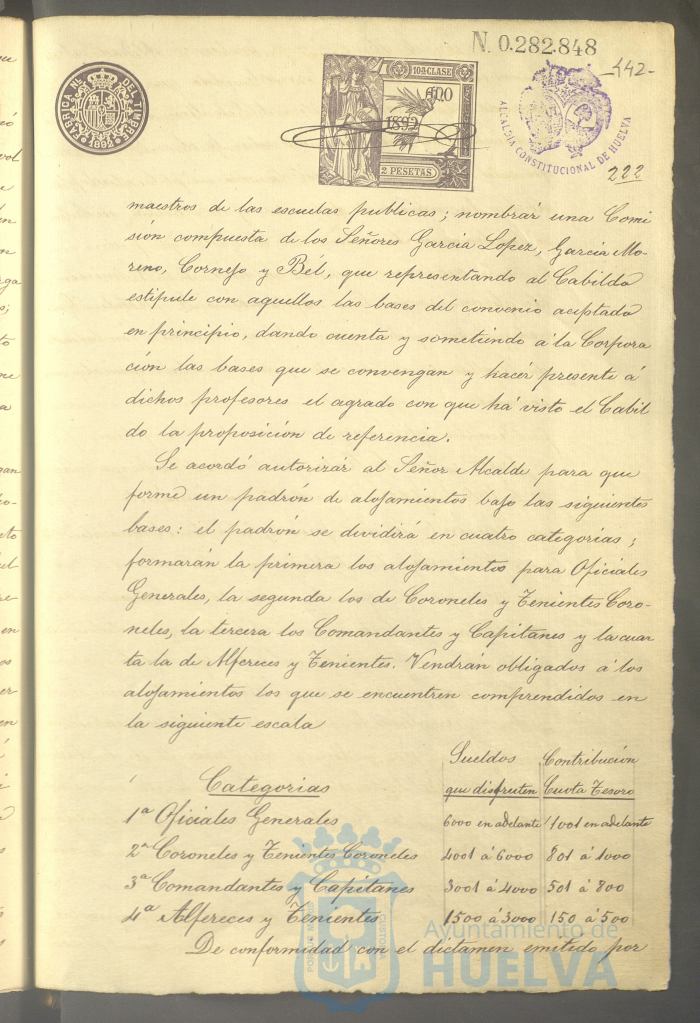 N. 0.282.848
-442-
FABRICA NL. DEL TIMBRE
1892
10ª CLASE
1892
2 PESETAS
ALCALDIA CONSTITUCIONAL DE HUELVA
222
maestros de las escuelas publicas; nombrár una Comi
sión compuesta de los Señores Garcia Lopez, Garcia Mo-
reno, Cornejo y Bél, que representando al Cabildo
estipule con aquellos las bases del convenio aceptado
en principio, dando cuenta y sometiendo á la Corpora
ción las bases que se convengan y hacér presente á
dichos profesores el agrado con que há visto el Cabil
do la proposición de referencia.
Se acordó autorizár al Señor Alcalde para que
forme un padrón de alojamientos bajo las siguientes
bases: el padrón se dividirá en cuatro categorias;
formarán la primera los alojamientos para Oficiales
Generales, la segunda los de Coroneles y Tenientes Coro-
neles, la tercera los Comandantes y Capitanes y la cuar
ta la de Alfereces y Tenientes. Vendrán obligados á los
alojamientos los que se encuentren comprendidos en
la siguiente escala
Categorias Sueldos que disfruten Contribución Cuota Tesoro
1ª Oficiales Generales 6000 en adelante 1001 en adelante
2ª Coroneles y Tenientes Coroneles 4001 á 6000 801 á 1000
3ª Comandantes y Capitanes 3001 á 4000 501 á 800
4ª Alfereces y Tenientes 1500 á 3000 150 á 500
De conformidad con el dictamen emitido por
Ayuntamiento de
HUELVA